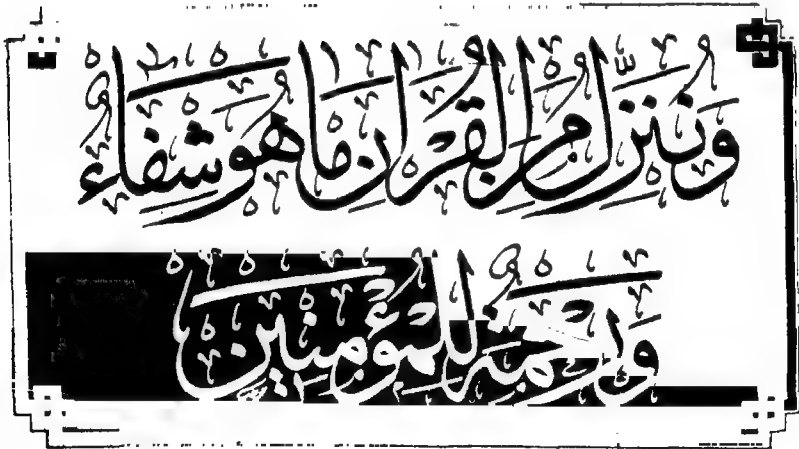 وَنُنَزِّلُ مِنَ الْقُرْآنِ مَا هُوَ شِفَاءٌ
وَرَحْمَةٌ لِلْمُؤْمِنِينَ